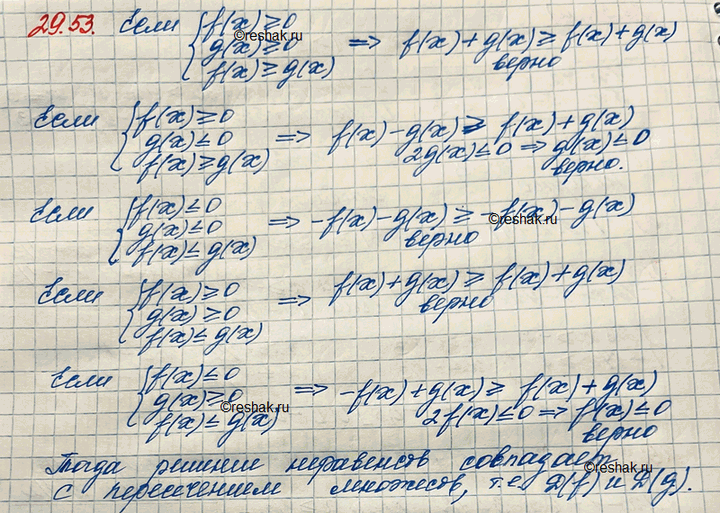 29.53. Если { f(x) ≥ 0
g(x) ≥ 0 => f(x) + g(x) ≥ f(x) + g(x)
f(x) ≥ g(x) верно
©reshak.ru
Если { f(x) ≥ 0
g(x) ≤ 0 => f(x) - g(x) ≥ f(x) + g(x)
f(x) ≥ g(x) 2g(x) ≤ 0 => g(x) ≤ 0
верно.
Если { f(x) ≤ 0
g(x) ≤ 0 => -f(x) - g(x) ≥ -f(x) - g(x)
f(x) ≤ g(x) верно
©reshak.ru
Если { f(x) ≥ 0
g(x) ≥ 0 => f(x) + g(x) ≥ f(x) + g(x)
f(x) ≤ g(x) верно
Если { f(x) ≤ 0
g(x) ≥ 0 => -f(x) + g(x) ≥ f(x) + g(x)
f(x) ≤ g(x) 2f(x) ≤ 0 => f(x) ≤ 0
©reshak.ru
верно
Тогда решение неравенств совпадает
©reshak.ru
с пересечением множеств, т.е. D(f) и D(g).